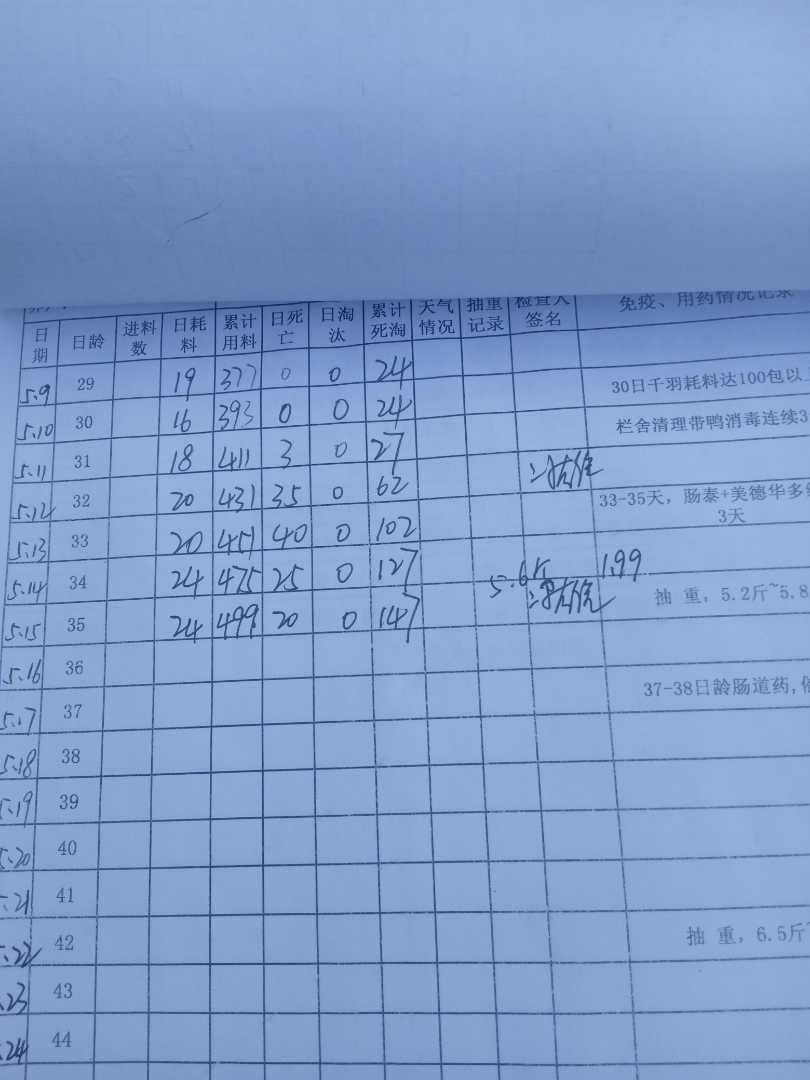 日期 日龄 进料数 日耗料 累计用料 日死亡 日淘汰 累计死淘 天气情况 抽重记录 检查人签名 免疫、用药情况记录
5.9 29 19 377 0 0 24
30日千羽耗料达100包以
5.10 30 16 393 0 0 24
栏舍清理带鸭消毒连续3
5.11 31 18 411 3 0 27
5.12 32 20 431 35 0 62
33-35天，肠泰+美德华多
3天
5.13 33 20 451 40 0 102
5.14 34 24 475 25 0 127
5.6斤 1.99
5.15 35 24 499 20 0 147
抽 重，5.2斤~5.8
5.16 36
37-38日龄肠道药,
5.17 37
5.18 38
5.19 39
5.20 40
5.21 41
5.22 42
抽 重，6.5斤~
5.23 43
5.24 44